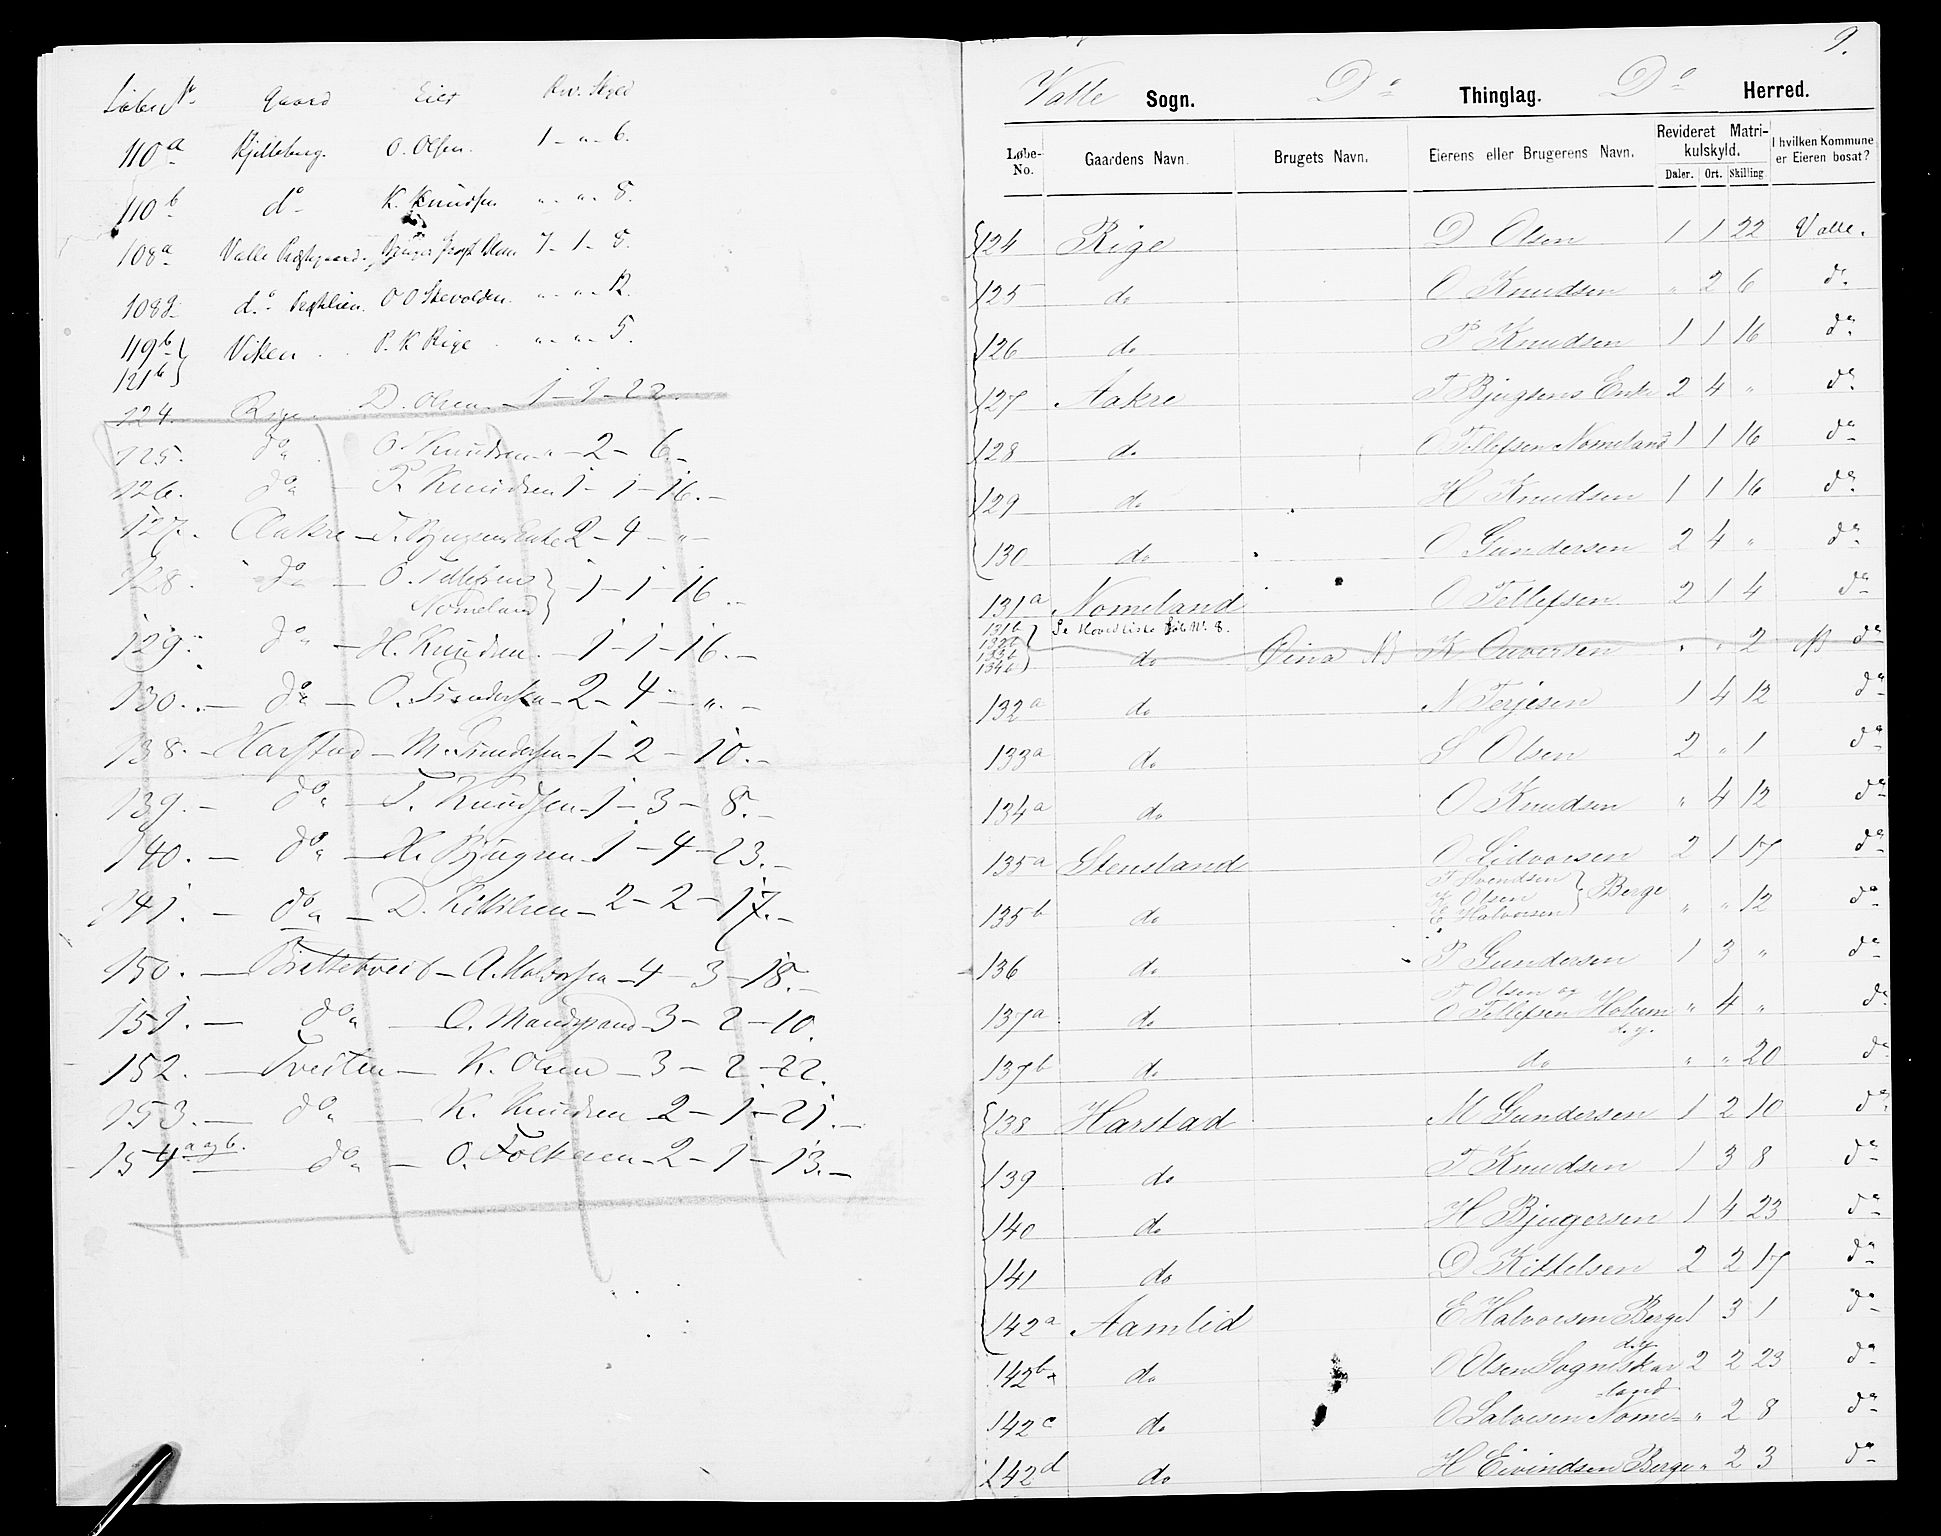 Løbe No Gaard Eier Rev. Skyld
110a Kjelleberg. O. Olsen. 1 - „ - 6.
110b do K. Knudsen „ - „ - 8.
108a Valle Præstegaard. 7 - 1 - 8.
108g do O O „ - „ - 12.
119b } Viken . . P. K Rige . „ - „ - 5.
121b }
124. Rige. D. Olsen. - 1 - 1 - 22.
125. do O. Knudsen „ - 2 - 6 -
126. do - P. Knudsen 1 - 1 - 16. -
127. Aakre - T. Bjugsens Enke 2 - 4 - „ -
128. do - O. Tellefsens } - 1 - 1 - 16 -
Nomeland }
129. do - H. Knudsen. - 1 - 1 - 16. -
130. - do - O. Gundersen - 2 - 4 - „. -
138. - Harstad - M. Gundersen - 1 - 2 - 10. -
139. - do - T. Knudsen - 1 - 3 - 8. -
140. - do - H. Bjugsen - 1 - 4 - 23. -
141. - do - D. Kittilsen - 2 - 2 - 17. -
150. - - A. Halvorsen - 4 - 3 - 18. -
151. - do - O. - 3 - 2 - 10.
152. - Tveiten - K. Olsen - 3 - 2 - 22.
153. - do - K. Knudsen - 2 - 1 - 21. -
154 a og b. do - O. Folkesen - 2 - 1 - 13. -
9.
Valle Sogn. Do Thinglag. Do Herred.
Løbe-No. Gaardens Navn. Brugets Navn. Eierens eller Brugerens Navn. Revideret Matrikulskyld. Daler. Ort. Skilling I hvilken Kommune er Eieren bosat?
124 Rige D Olsen 1 1 22 Valle.
125 do O Knudsen „ 2 6 do
126 do P Knudsen 1 1 16 do
127 Aakre T Bjugsens Enke 2 4 „ do
128 do O Tellefsen Nomeland 1 1 16 do
129 do H Knudsen 1 1 16 do
130 do O Gundersen 2 4 „ do
131a Nomeland O Tellefsen 2 1 4 do
131b 132b 133b 134b } Se Hovedliste Løb No. 8.
do K „ „ 2 do
132a do N Terjesen 1 4 12 do
133a do S Olsen 2 „ 1 do
134a do O Knudsen „ 4 12 do
135a Stensland O 2 1 17 do
135b do T Svendsen K Olsen E Halvorsen } Berge „ „ 12 do
136 do P Gundersen 1 3 „ do
137a do T Olsen og O Tellefsen Holum d.y. „ 4 „ do
137b do do „ „ 20 do
138 Harstad M Gundersen 1 2 10 do
139 do T Knudsen 1 3 8 do
140 do H Bjugersen 1 4 23 do
141 do D Kittelsen 2 2 17 do
142a Aamlid E Halvorsen Berge 1 3 1 do
142b do O Olsen d.y. 2 2 23 do
142c do O Nomeland „ 2 8 do
142d do H Eivindsen Berge „ 2 3 do